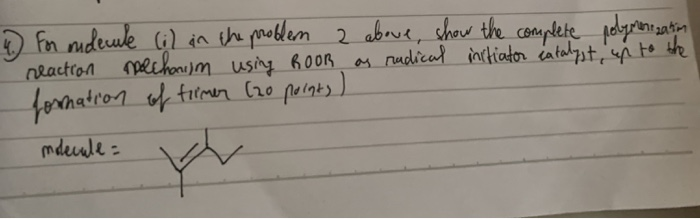 4.) For molecule (i) in the problem 2 above, show the complete polymerization
reaction mechanism using ROOR as radical initiator catalyst, up to the
formation of trimer (20 points)
molecule =